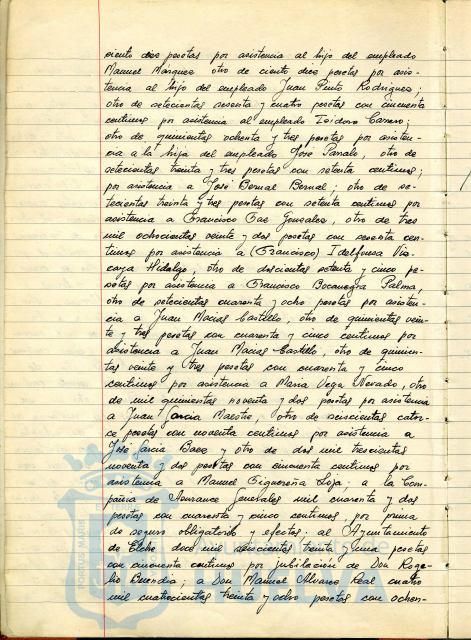 ciento doce pesetas por asistencia al hijo del empleado
Manuel Márquez otro de ciento doce pesetas por asis-
tencia al hijo del empleado Juan Pinto Rodríguez;
otro de setecientas sesenta y cuatro pesetas con cincuenta
centimos por asistencia al empleado Isidoro Carrero;
otro de quinientas ochenta y tres pesetas por asisten-
cia a la hija del empleado José Parralo, otro de
setecientas treinta y tres pesetas con setenta centimos;
por asistencia a José Bernal Bernal; otro de se-
tecientas treinta y tres pesetas con setenta centimos por
asistencia a Francisco González, otro de tres
mil ochocientas veinte y dos pesetas con sesenta cen-
timos por asistencia a (Francisco) Idelfonsa Viz-
caya Hidalgo, otro de doscientas setenta y cinco pe-
setas por asistencia a Francisco Bocanegra Palma,
otro de setecientas cuarenta y ocho pesetas por asisten-
cia a Juan Macias Castillo, otro de quinientas vein-
te y tres pesetas con cuarenta y cinco centimos por
asistencia a Juan Macias Castillo, otro de quinien-
tas veinte y tres pesetas con cuarenta y cinco
centimos por asistencia a Maria Vega Nevado, otro
de mil quinientas noventa y dos pesetas por asistencia
a Juan Garcia Maestre, otro de seiscientas cator-
ce pesetas con noventa centimos por asistencia a
José Garcia Baez y otro de dos mil trescientas
noventa y dos pesetas con cincuenta centimos por
asistencia a Manuel Figuereña; a la Com-
pañia de Generales mil cuarenta y dos
pesetas con cuarenta y cinco centimos por prima
de seguro obligatorio y efectos; al Ayuntamiento
de Elche doce mil seiscientas treinta y una pesetas
con cincuenta centimos por jubilación de Don Roge-
lio Buendia; a Don Manuel Alvarez Real cuatro
mil cuatrocientas treinta y ocho pesetas con ochen-